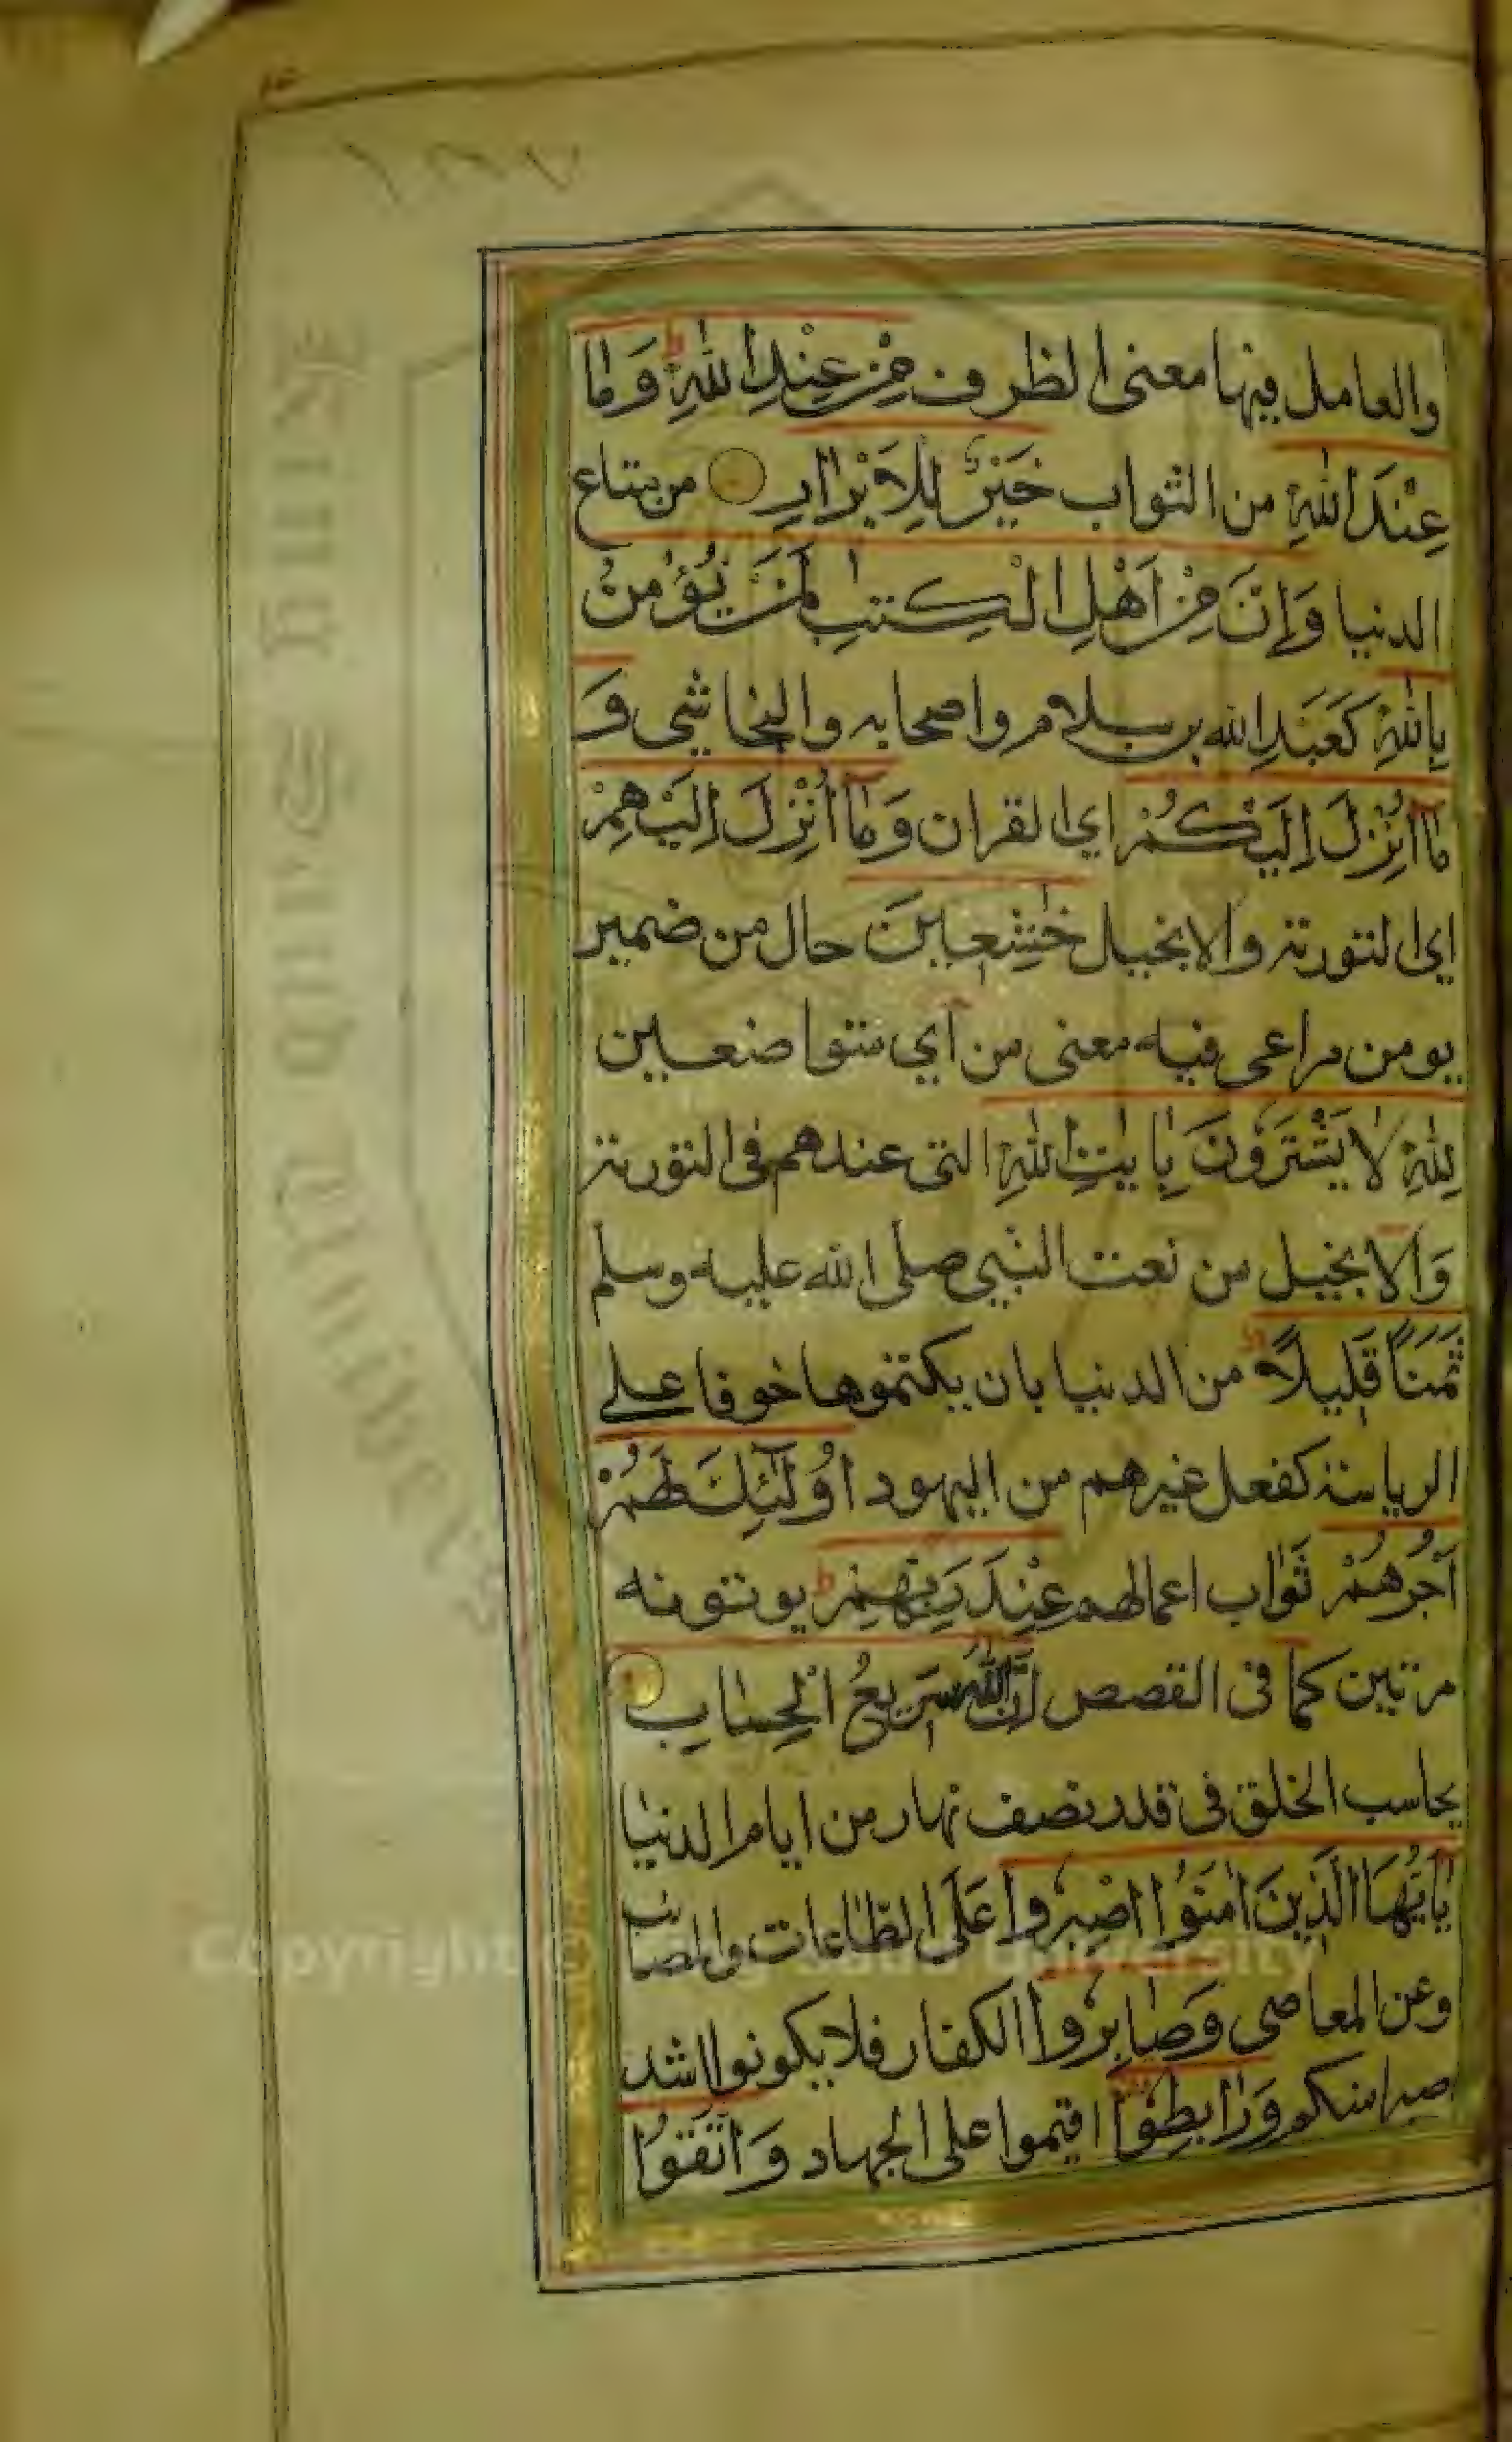 ١٨٧
والعامل فيها معنى الظرف مِنْ عِنْدِ اللهِ ط وَمَا
عِنْدَ اللهِ من الثواب خَيْرٌ لِلْاَبْرَارِ من متاع
الدنيا وَاِنَّ مِنْ اَهْلِ الْكِتٰبِ لَمَنْ يُؤْمِنُ
بِاللهِ كَعَبْدِ الله بن سلام واصحابه والنجاشي وَ
مَآ اُنْزِلَ اِلَيْكُمْ اي القران وَمَآ اُنْزِلَ اِلَيْهِمْ
اي التورىة والانجيل خٰشِعِيْنَ حال من ضمير
يومن مراعى فيه معنى من اي متواضعين
لِلهِ لَا يَشْتَرُوْنَ بِاٰيٰتِ اللهِ التي عندهم في التورىة
وَالانجيل من نعت النبي صلى الله عليه وسلم
ثَمَنًا قَلِيْلًا ط من الدنيا بان يكتموها خوفا على
الرياسة كفعل غيرهم من اليهود اُولٰٓئِكَ لَهُمْ
اَجْرُهُمْ ثَوَاب اعمالهم عِنْدَ رَبِّهِمْ ط يوتونه
مرتين كما في القصص اِنَّ اللهَ سَرِيْعُ الْحِسَابِ
يحاسب الخلق في قدر نصف نهار من ايام الدنيا
يٰاَيُّهَا الَّذِيْنَ اٰمَنُوْا اصْبِرُوْا عَلَى الطاعات والمصائب
وعن المعاصي وَصَابِرُوْا الكفار فلا يكونوا اشد
صبرا منكم وَرَابِطُوْا اقيموا على الجهاد وَاتَّقُوْا
Copyright © King Saud University